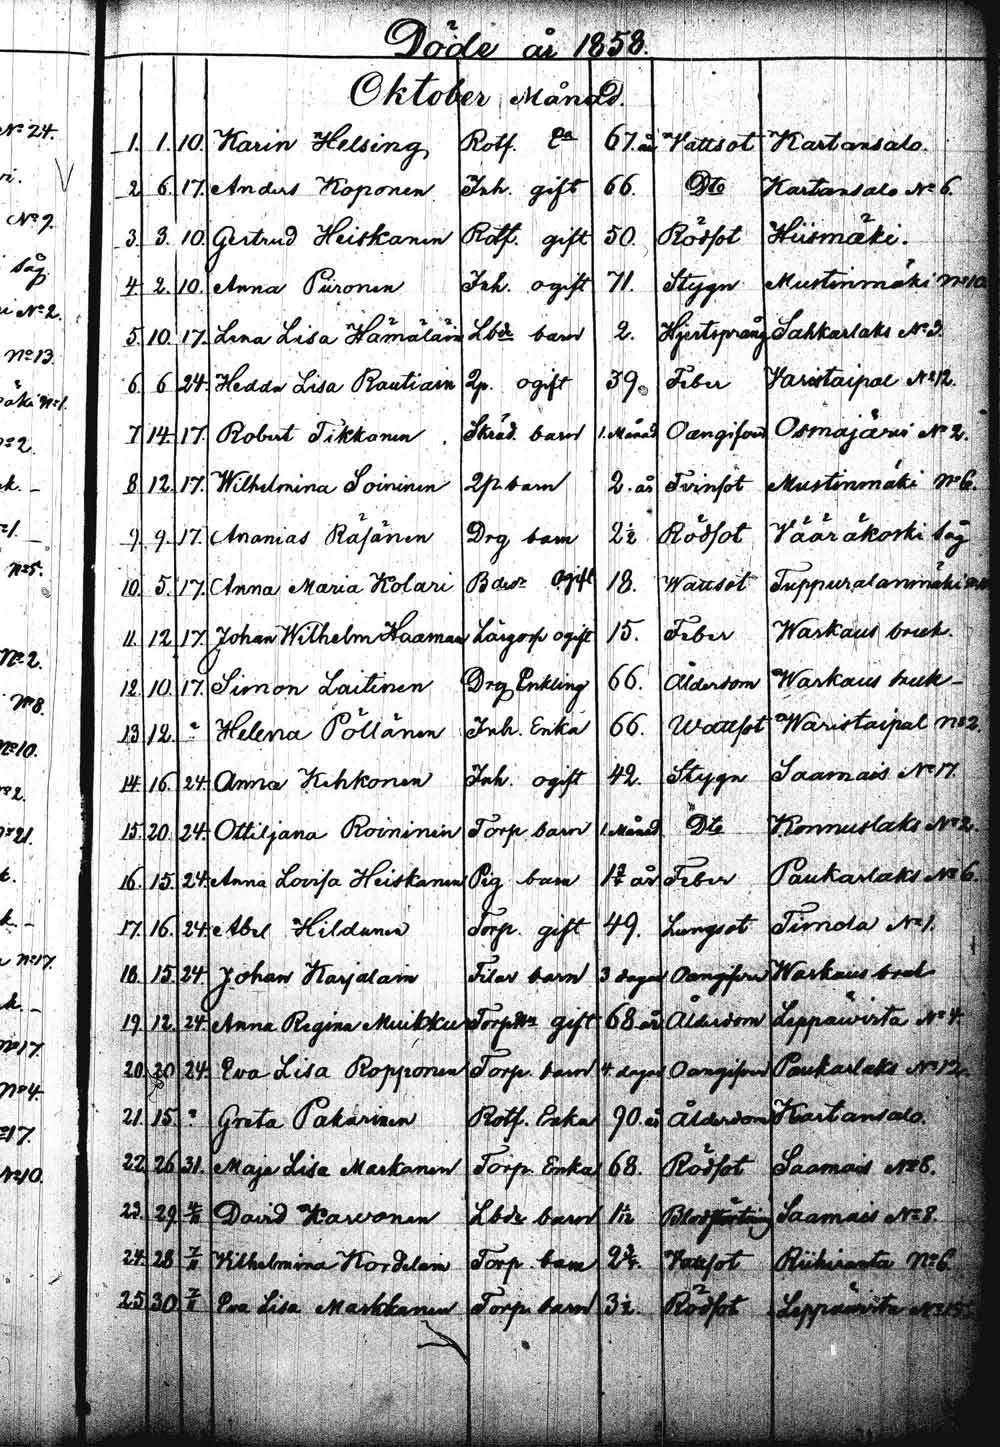 Döde år 1858.
Oktober Månad.
1. 1. 10. Karin Helsing Rotf. Ea 67. år Vattsot Kartansalo.
2 6. 17. Anders Koponen Inh. gift 66. Dto Kartansalo No 6.
3. 3. 10 Gertrud Heiskanen Rotf. gift 50. Rödsot Hiismäki.
4 2. 10. Anna Piironen Inh. ogift 71. Stygn Mustinmäki No 10
5. 10. 17. Lena Lisa Hämäläin Lbdr barn 2. Hjertsprång Sahkarlaks No 3.
6. 6 24. Hedda Lisa Rautiain 2p. ogift 39. Feber Varistaipal No 12.
7 14. 17. Robert Tikkanen Skräd. barn 1. Månad Oangifven Osmajärvi No 2.
8. 12. 17. Wilhelmina Soininen 2p. barn 2. år Tvinsot Mustinmäki No 6.
9. 9. 17. Ananias Räsänen Drg barn 2½ Rödsot Vääräkoski såg
10. 5. 17. Anna Maria Kolari ogift 18. Wattsot Tuppuralanmäki
11. 12 17. Johan Wilhelm Haaman ogift 15. Feber Warkaus bruk.
12. 10. 17. Simon Laitinen Drg Enkling 66. Ålderdom Warkaus bruk -
13 12. " Helena Pöllänen Inh. Enka 66. Wattsot Waristaipal No 2.
14. 16. 24. Anna Kehkonen Inh. ogift 42. Stygn Saamais No 17.
15. 20. 24. Ottiljana Roininen Torp barn 1. Månad Dto Konnuslaks No 2.
16. 15. 24. Anna Lovisa Heiskanen Pig barn år Feber Paukarlaks No 6.
17. 16. 24. Abel Hildunen Torp. gift 49. Lungsot Timola No 1.
18. 15. 24 Johan Karjalain Filar barn 3 dagar Oangifven Warkaus bruk
19. 12. 24. Anna Regina Muikku gift 68. år Ålderdom Leppävirta No 4.
20. 20 24. Eva Lisa Ropponen Torp. barn 4. dagar Oangifven Paukarlaks No 12.
21. 15. " Greta Pakarinen Rotf. Enka 90. år Ålderdom Kartansalo.
22. 26 31. Maja Lisa Markanen Torp. Enka 68. Rödsot Saamais No 8.
23. 29. David Karvonen Lbdr barn Saamais No 8.
24. 28 7/11 Wilhelmina Kordelain Torp barn Vattsot Riihiranta No 6.
25. 30. 7/11 Eva Lisa Markkanen Torp barn 3½ Rödsot Leppävirta